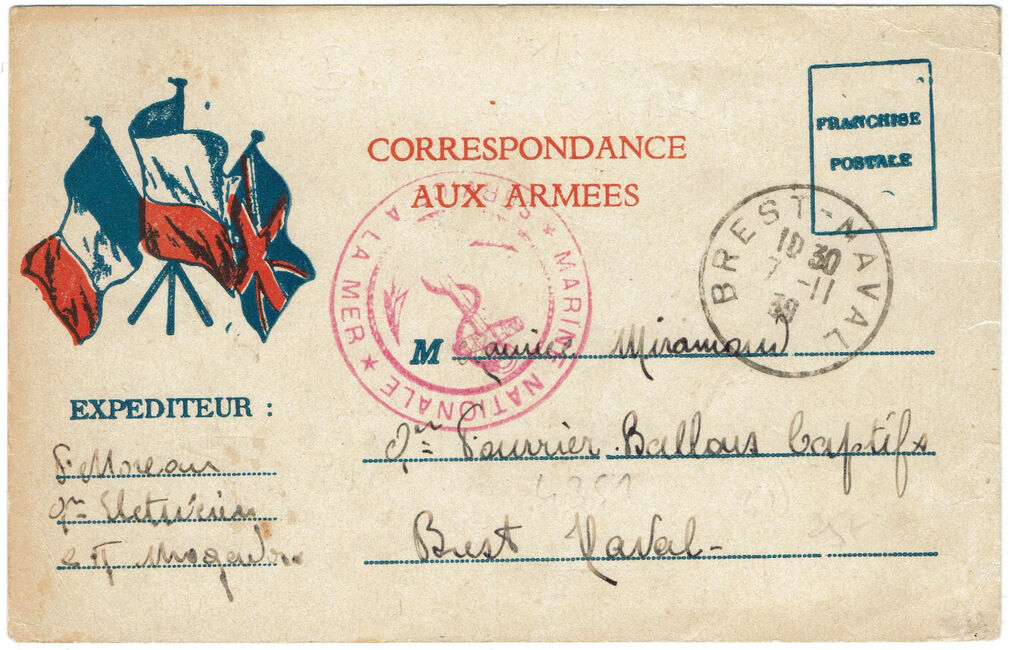 CORRESPONDANCE
AUX ARMEES
FRANCHISE
POSTALE
BREST-NAVAL
10 30
7-11
39
★ MARINE NATIONALE ★
A LA MER
M Miramond
Fourrier Ballons Captifs
Brest Naval-
EXPEDITEUR :
Moreau